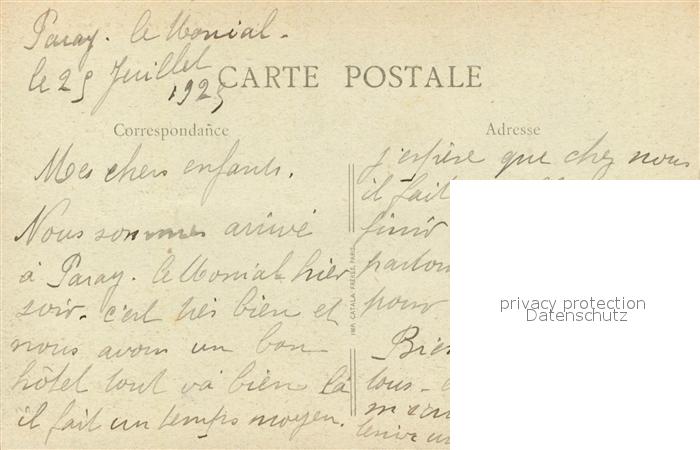 Paray. le Monial.
le 25 Juillet
1925
CARTE POSTALE
Correspondance
Adresse
Mes chers enfants.
Nous sommes arrivé
à Paray. le Monial hier
soir. c'est très bien et
nous avons un bon
hôtel tout va bien là
il fait un temps moyen.
IMP. CATALA FRÈRES, PARIS
j'espère que chez nous
il fait
finir
pour
Bien
tous
privacy protection
Datenschutz